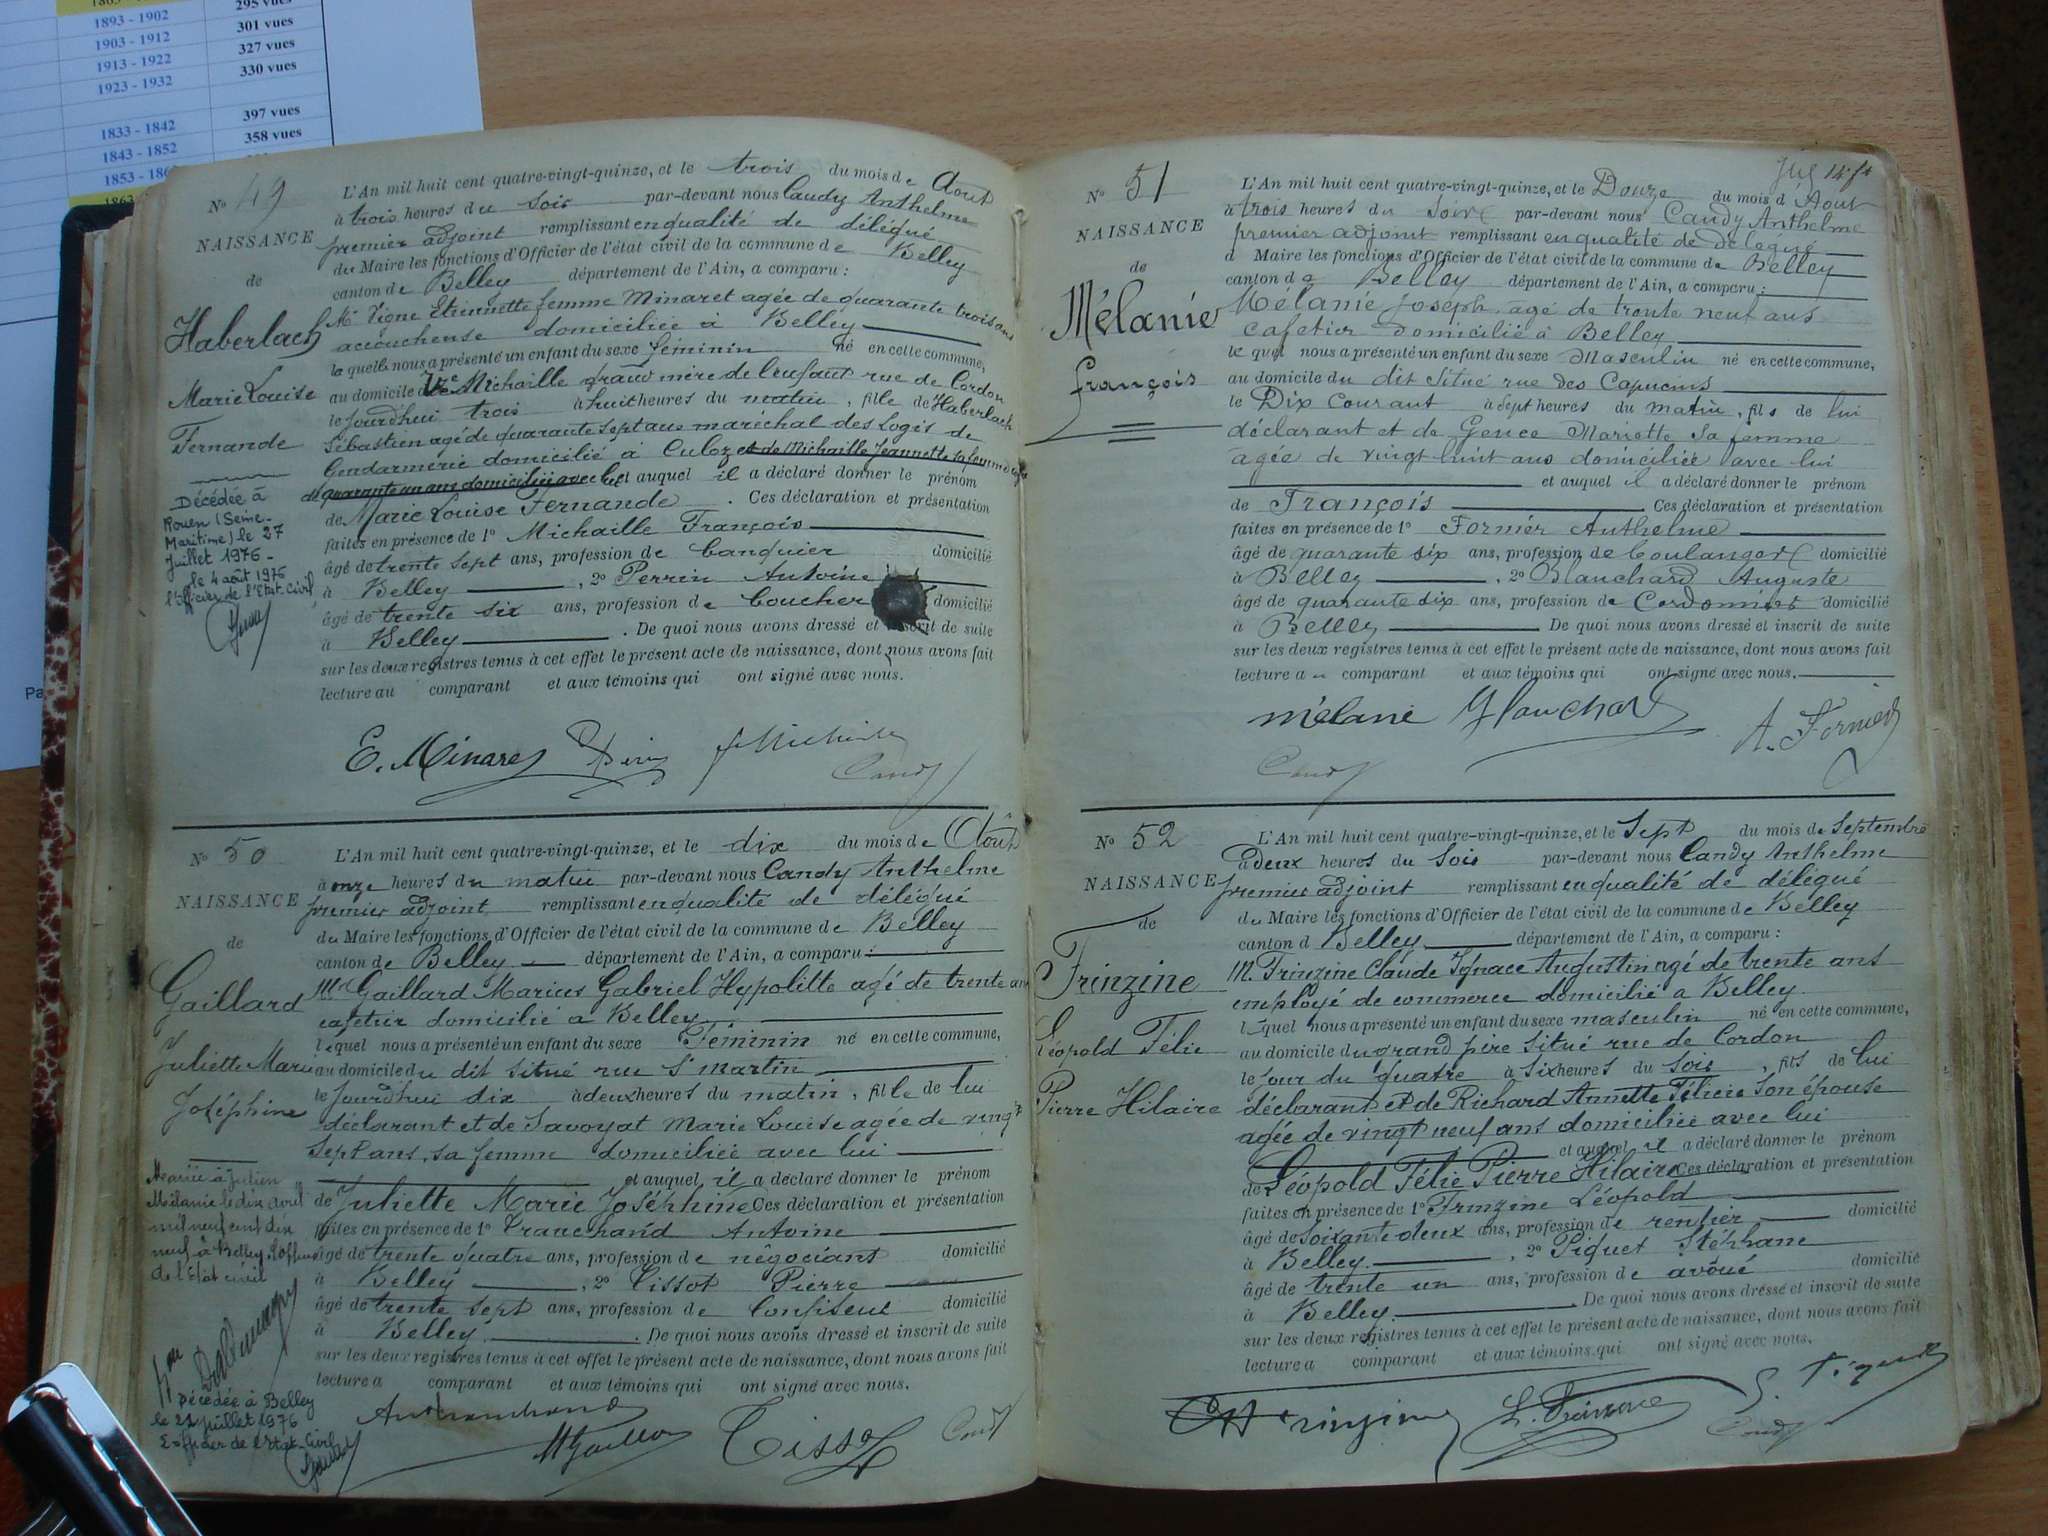 295 vues
1893 - 1902
301 vues
1903 - 1912
327 vues
1913 - 1922
330 vues
1923 - 1932
397 vues
1833 - 1842
358 vues
1843 - 1852
1853 -
1863
Pa
N° 49
NAISSANCE
de
Haberlach
Marie Louise
Fernande
Décédée à
Rouen (Seine-
Maritime) le 27
Juillet 1976 -
le 4 août 1976
l'Officier de l'Etat Civil
L'An mil huit cent quatre-vingt-quinze, et le trois du mois de Aout
à trois heures du soir par-devant nous Candy Anthelme
premier adjoint remplissant en qualité de délégué
du Maire les fonctions d'Officier de l'état civil de la commune de Belley
canton de Belley département de l'Ain, a comparu :
Me Vigne Etiennette femme Minaret agée de quarante trois ans
accoucheuse domiciliée à Belley
laquelle nous a présenté un enfant du sexe féminin né en cette commune,
au domicile de Michaille grand mère de l'enfant rue de Cordon
le jourd'hui trois à huit heures du matin, fille de Haberlach
Sébastien agé de quarante sept ans maréchal des logis de
Gendarmerie domicilié à Culoz et de Michaille Jeannette sa femme agée
de quarante un ans domiciliée avec lui et auquel il a déclaré donner le prénom
de Marie Louise Fernande. Ces déclaration et présentation
faites en présence de 1° Michaille François
âgé de trente sept ans, profession de banquier domicilié
à Belley, 2° Perrin Antoine
âgé de trente six ans, profession de boucher domicilié
à Belley. De quoi nous avons dressé et inscrit de suite
sur les deux registres tenus à cet effet le présent acte de naissance, dont nous avons fait
lecture au comparant et aux témoins qui ont signé avec nous.
E. Minaret
Candy
N° 50
NAISSANCE
de
Gaillard
Juliette Marie
Joséphine
Mariée à Julien
Mélanie le dix avril
mil neuf cent dix
neuf à Belley. L'officier
de l'Etat civil
Décédée à Belley
le 21 juillet 1976
L'officier de l'Etat-Civil
L'An mil huit cent quatre-vingt-quinze, et le dix du mois de Août
à onze heures du matin par-devant nous Candy Anthelme
premier adjoint remplissant en qualité de délégué
du Maire les fonctions d'Officier de l'état civil de la commune de Belley
canton de Belley département de l'Ain, a comparu :
Mr Gaillard Marius Gabriel Hypolitte agé de trente ans
cafetier domicilié a Belley
lequel nous a présenté un enfant du sexe Féminin né en cette commune,
au domicile du dit situé rue St Martin
le jourd'hui dix à deux heures du matin, fille de lui
déclarant et de Savoyat Marie Louise agée de vingt
sept ans, sa femme domiciliée avec lui
et auquel il a déclaré donner le prénom
de Juliette Marie Joséphine Ces déclaration et présentation
faites en présence de 1° Tranchand Antoine
âgé de trente quatre ans, profession de négociant domicilié
à Belley, 2° Tissot Pierre
âgé de trente sept ans, profession de Confiseur domicilié
à Belley. De quoi nous avons dressé et inscrit de suite
sur les deux registres tenus à cet effet le présent acte de naissance, dont nous avons fait
lecture a comparant et aux témoins qui ont signé avec nous.
Antranchand
MGaillard
Tissot
Candy
N° 51
NAISSANCE
de
Mélanie
François
L'An mil huit cent quatre-vingt-quinze, et le Douze du mois d'Aout
à trois heures du soir par-devant nous Candy Anthelme
premier adjoint remplissant en qualité de délégué
d Maire les fonctions d'Officier de l'état civil de la commune de Belley
canton de Belley département de l'Ain, a comparu :
Mélanie Joseph agé de trente neuf ans
cafetier domicilié à Belley
lequel nous a présenté un enfant du sexe Masculin né en cette commune,
au domicile du dit situé rue des Capucins
le Dix courant à sept heures du matin, fils de lui
déclarant et de Gence Mariette sa femme
agée de vingt huit ans domiciliée avec lui
et auquel il a déclaré donner le prénom
de François Ces déclaration et présentation
faites en présence de 1° Formér Anthelme
âgé de quarante six ans, profession de boulanger domicilié
à Belley, 2° Blanchard Auguste
âgé de quarante six ans, profession de Cordonnier domicilié
à Belley De quoi nous avons dressé et inscrit de suite
sur les deux registres tenus à cet effet le présent acte de naissance, dont nous avons fait
lecture a comparant et aux témoins qui ont signé avec nous.
mélanie Blanchard
Candy
N° 52
NAISSANCE
de
Frinzine
Léopold Félie
Pierre Hilaire
L'An mil huit cent quatre-vingt-quinze, et le Sept du mois de Septembre
à deux heures du soir par-devant nous Candy Anthelme
premier adjoint remplissant en qualité de délégué
du Maire les fonctions d'Officier de l'état civil de la commune de Belley
canton d Belley département de l'Ain, a comparu :
M. Frinzine Claude Ignace Augustin agé de trente ans
employé de commerce domicilié a Belley
lequel nous a présenté un enfant du sexe masculin né en cette commune,
au domicile du grand père situé rue de Cordon
le jour du quatre à six heures du soir, fils de lui
déclarant et de Richard Annette Félicie son épouse
agée de vingt neuf ans domiciliée avec lui
et auquel il a déclaré donner le prénom
de Léopold Félie Pierre Hilaire Ces déclaration et présentation
faites en présence de 1° Frinzine Léopold
âgé de soixante deux ans, profession de rentier domicilié
à Belley, 2° Piquet Stéphane
âgé de trente un ans, profession de avoué domicilié
à Belley. De quoi nous avons dressé et inscrit de suite
sur les deux registres tenus à cet effet le présent acte de naissance, dont nous avons fait
lecture a comparant et aux témoins qui ont signé avec nous.
L. Frinzine
S. Piquet
Candy